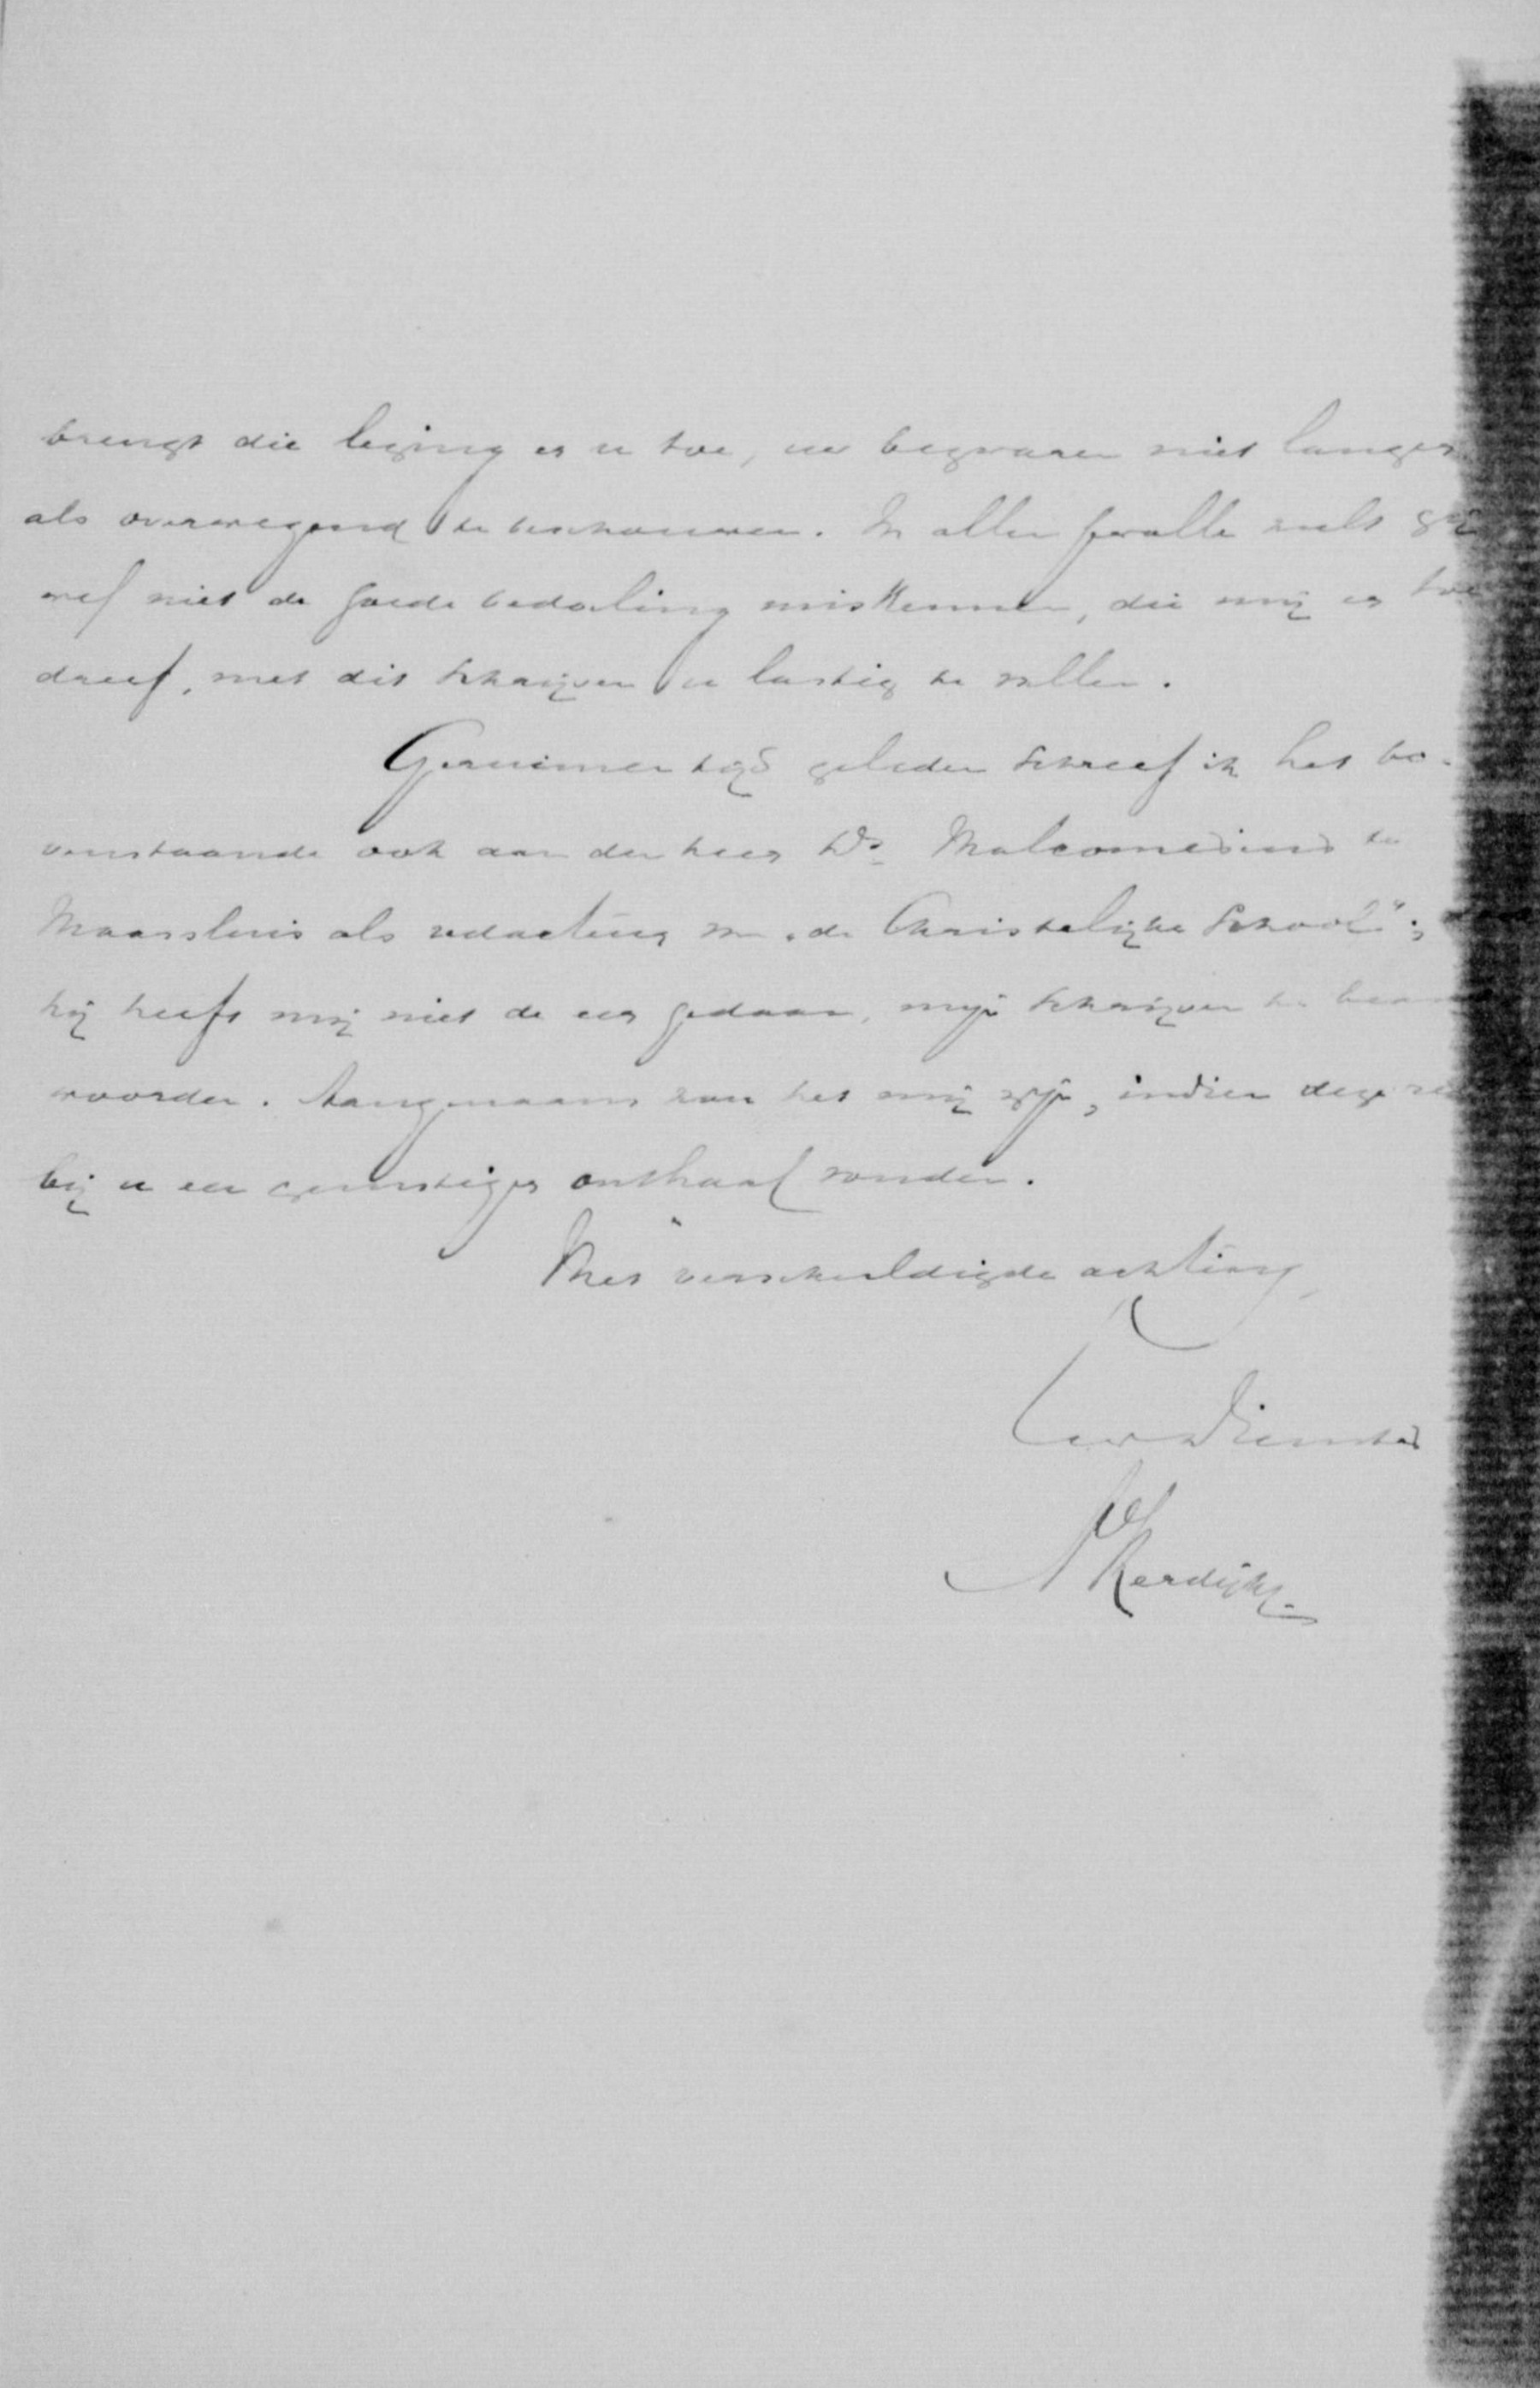 brengt die lezing er u toe, uw bezwaren niet langer
als overwegend te beschouwen. In allen gevalle zult gij
wel niet de goede bedoeling miskennen, die mij er toe
dreef, met dit schrijven u lastig te vallen.
Geruimen tijd geleden schreef ik het bo-
venstaande ook aan den heer Ds. Malcomesius te
Maassluis als redacteur van "de Christelijke School";
hij heeft mij niet de eer gedaan, mijn schrijven te bean
woorden. Aangenaam zou het mij zijn, indien deze
bij u een gunstiger onthaal vonden.
Met verschuldigde achting,
Uw Dienaar
A Kerdijk.